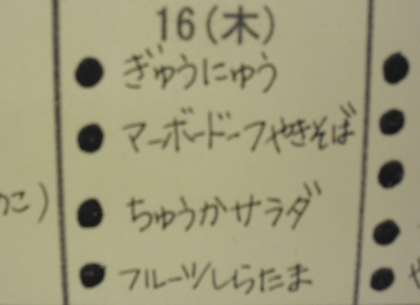 16(木)
● ぎゅうにゅう
● マーボードーフやきそば
● ちゅうかサラダ
● フルーツしらたま
こ)